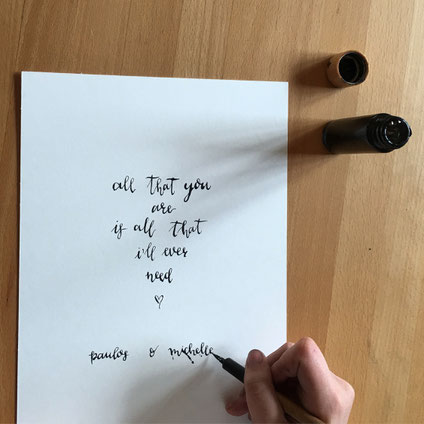 all that you
are
is all that
i'll ever
need
paulos & michelle